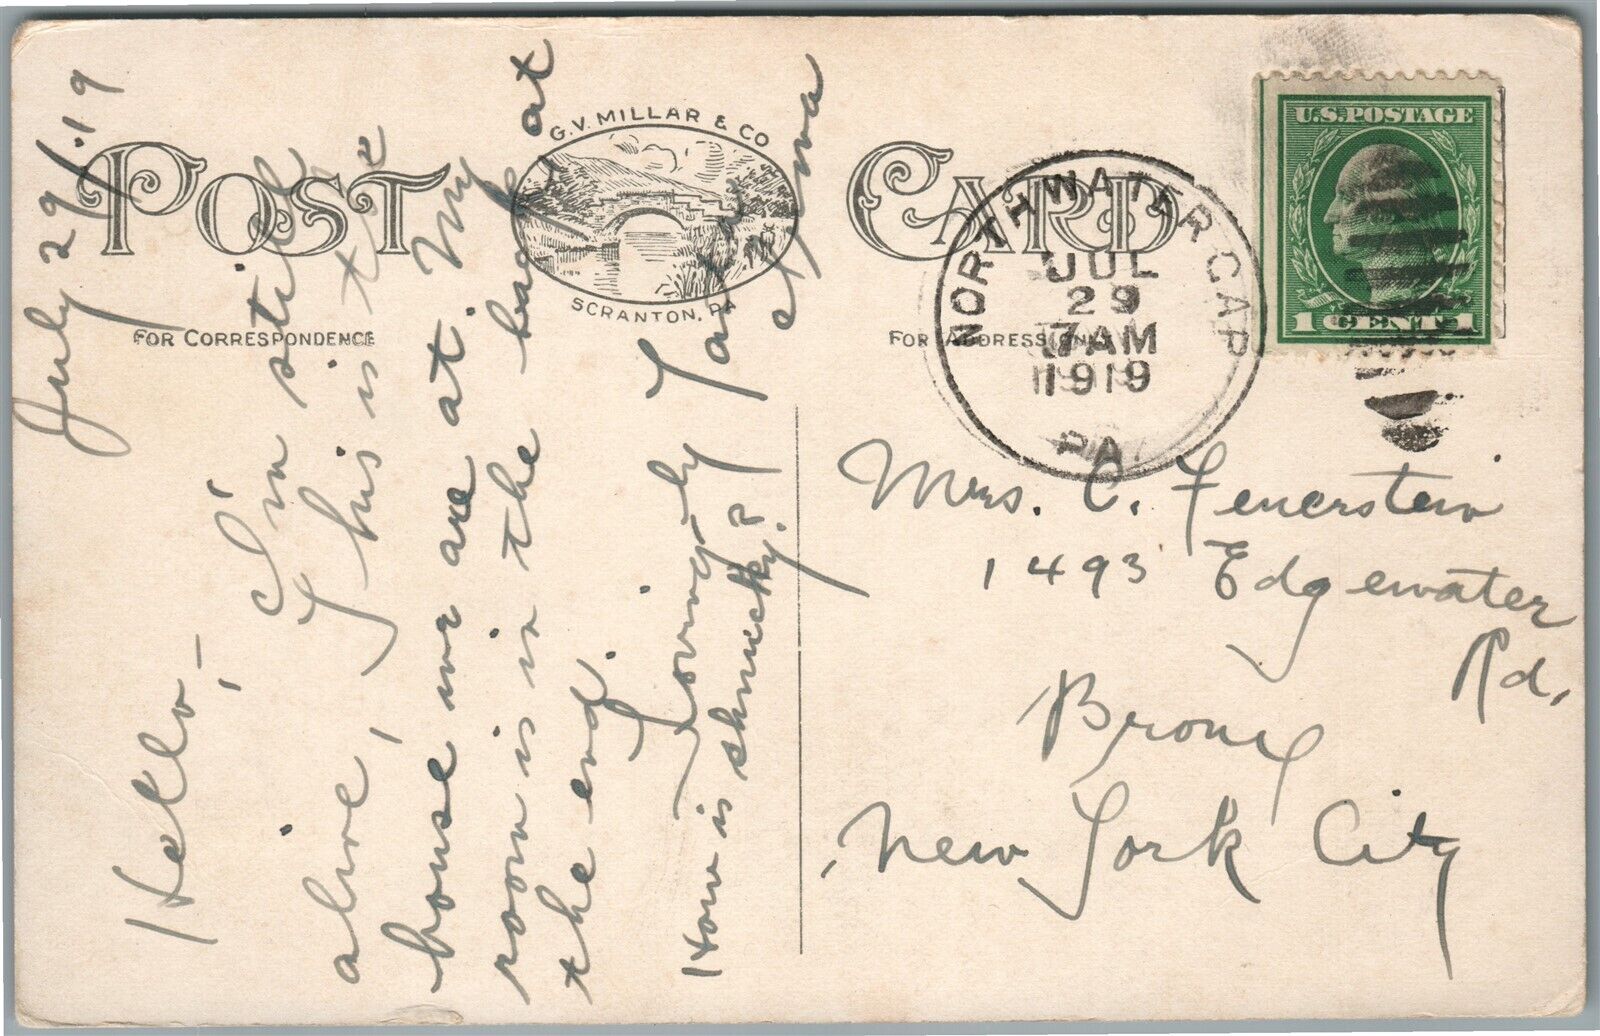 POST CARD
G.V. MILLAR & CO
SCRANTON, PA
FOR CORRESPONDENCE
FOR ADDRESS ONLY
U.S. POSTAGE
1 CENT 1
NORTH WATER GAP
JUL
29
7 AM
1919
PA.
July 29/.19
Hello,-
I'm still
alive, This is the
house we are at. My
room is in the back at
the end.
Lovingly
How is shmucky?
Mrs. C. Feuerstein
1493 Edgewater
Rd.
Bronx
New York City